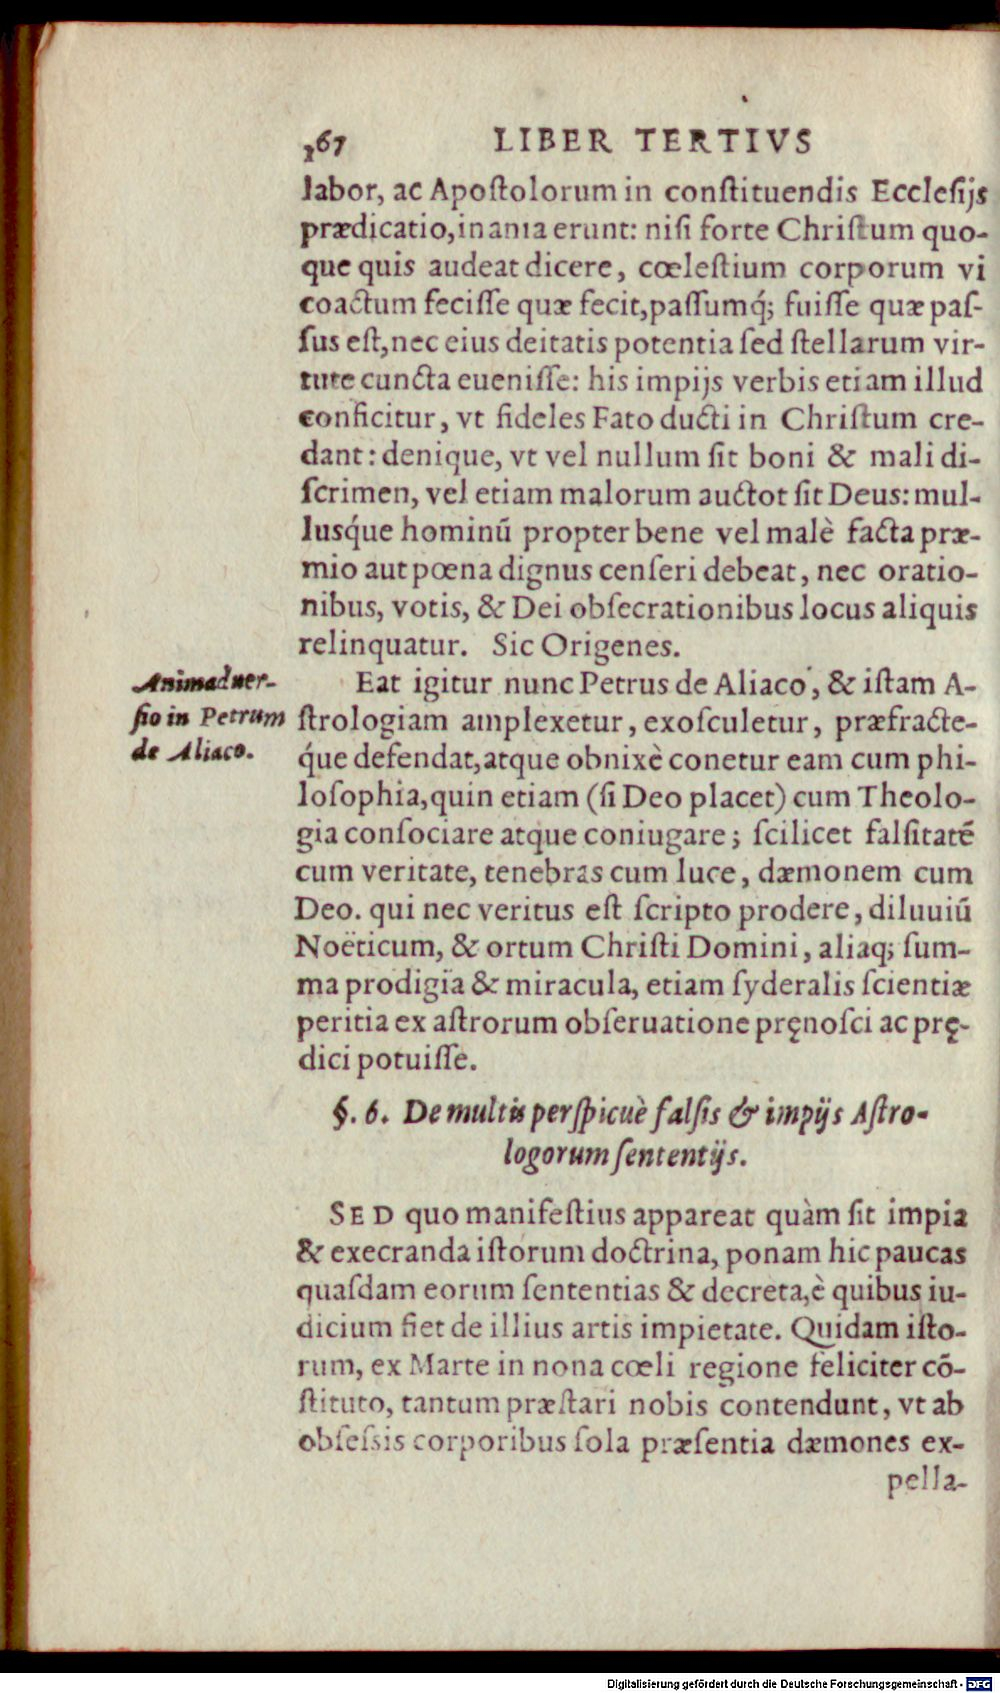 267 LIBER TERTIVS
labor, ac Apoſtolorum in conſtituendis Eccleſijs
prædicatio, inania erunt: niſi forte Chriſtum quo-
que quis audeat dicere, cœleſtium corporum vi
coactum feciſſe quæ fecit, paſſumq́; fuiſſe quæ paſ-
ſus eſt, nec eius deitatis potentia ſed ſtellarum vir-
tute cuncta eueniſſe: his impijs verbis etiam illud
conficitur, vt fideles Fato ducti in Chriſtum cre-
dant: denique, vt vel nullum ſit boni & mali di-
ſcrimen, vel etiam malorum auctot ſit Deus: mul-
luſq́ue hominũ propter bene vel malè facta præ-
mio aut pœna dignus cenſeri debeat, nec oratio-
nibus, votis, & Dei obſecrationibus locus aliquis
relinquatur. Sic Origenes.
Animaduer-
ſio in Petrum
de Aliaco.
Eat igitur nunc Petrus de Aliaco, & iſtam A-
ſtrologiam amplexetur, exoſculetur, præfracte-
q́ue defendat, atque obnixè conetur eam cum phi-
loſophia, quin etiam (ſi Deo placet) cum Theolo-
gia conſociare atque coniugare; ſcilicet falſitatẽ
cum veritate, tenebras cum luce, dæmonem cum
Deo. qui nec veritus eſt ſcripto prodere, diluuiũ
Noëticum, & ortum Chriſti Domini, aliaq; ſum-
ma prodigia & miracula, etiam ſyderalis ſcientiæ
peritia ex aſtrorum obſeruatione pręnoſci ac prę-
dici potuiſſe.
§. 6. De multis perſpicuè falſis & impijs Aſtro-
logorum ſententijs.
SED quo manifeſtius appareat quàm ſit impia
& execranda iſtorum doctrina, ponam hic paucas
quaſdam eorum ſententias & decreta, è quibus iu-
dicium fiet de illius artis impietate. Quidam iſto-
rum, ex Marte in nona cœli regione feliciter cõ-
ſtituto, tantum præſtari nobis contendunt, vt ab
obſeſsis corporibus ſola præſentia dæmones ex-
pella-
Digitalisierung gefördert durch die Deutsche Forschungsgemeinschaft - DFG